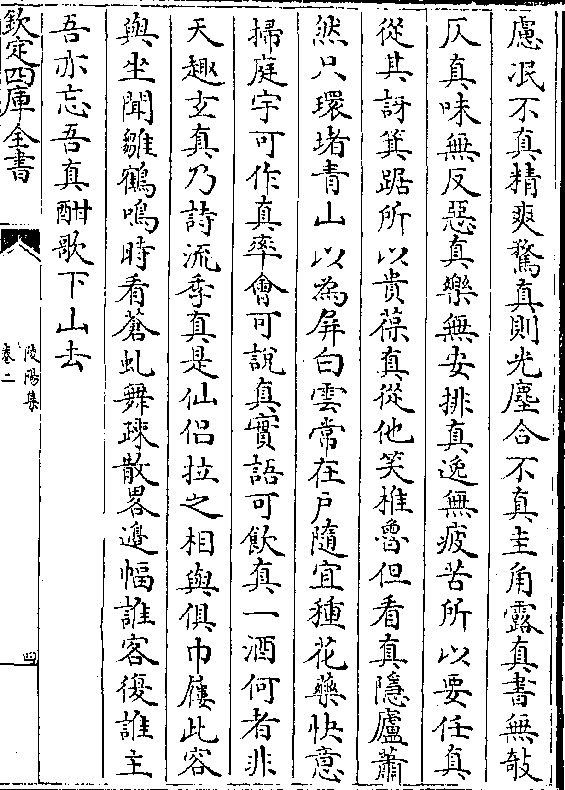 慮冺不真精爽驁真則光塵合不真圭角露真書無攲
仄真味無反惡真樂無安排真逸無疲苦所以要任真
從其訝箕踞所以貴葆真從他笑椎魯但看真隱廬蕭
然只環堵青山以為屏白雲常在戶隨宜種花藥快意
掃庭宇可作真率㑹可說真實語可飲真一酒何者非
天趣玄真乃詩流季真是仙侣拉之相與俱巾屨此容
與坐聞雛鶴鳴時看蒼虬舞踈散畧邊幅誰客復誰主
吾亦忘吾真酣歌下山去
欽定四庫全書
陵陽集
卷二
四